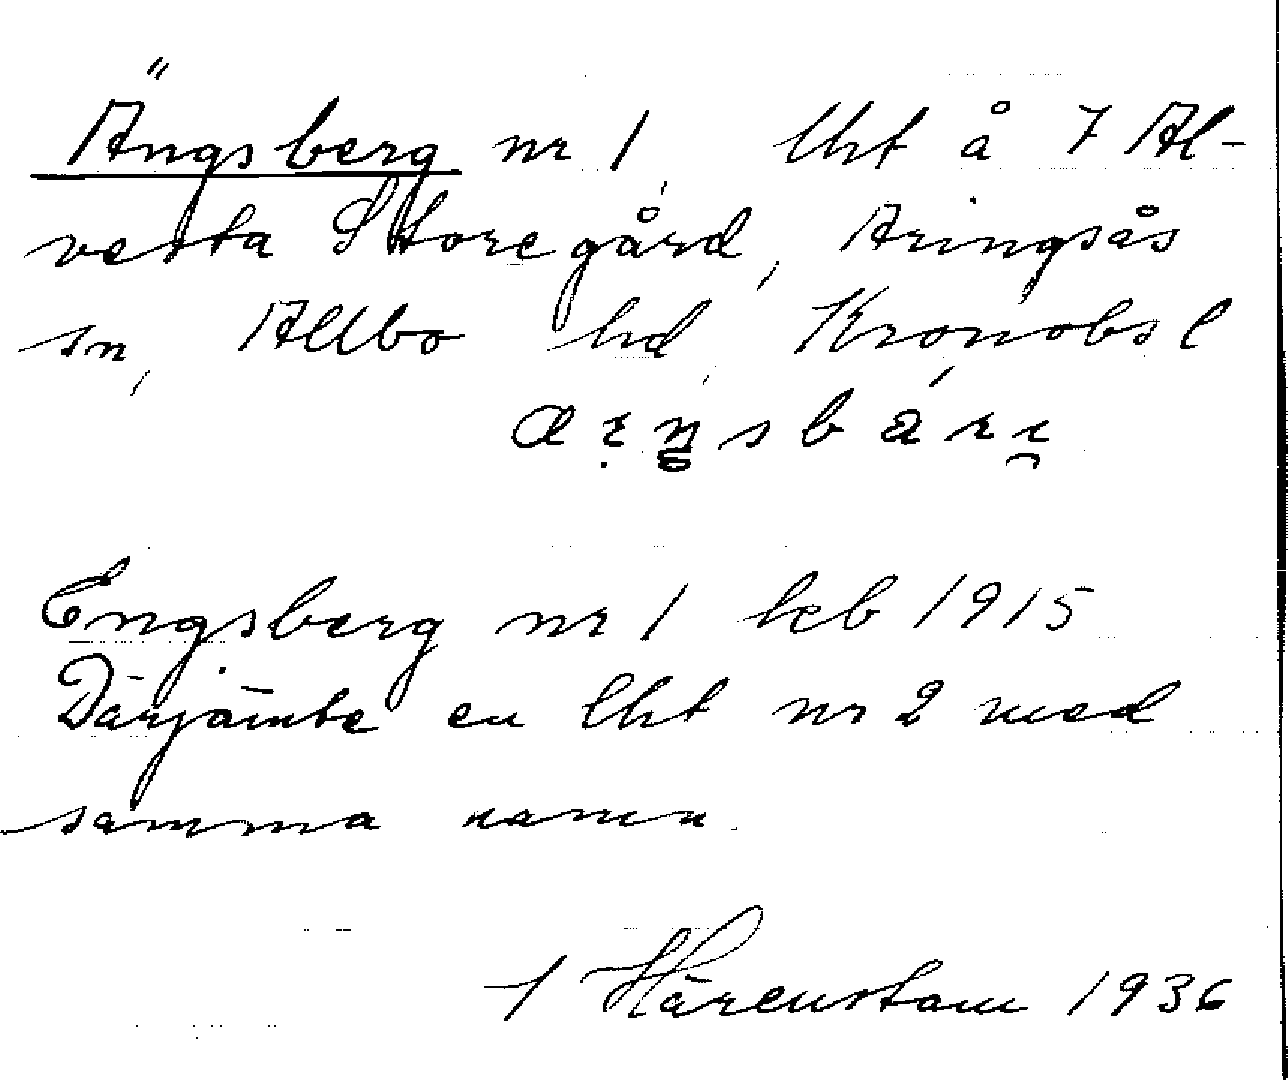 Ängsberg nr 1, lht å 7 Al-
vesta Storegård, Aringsås
sn, Allbo hd, Kronobs l
Engsberg nr 1 leb 1915
Därjämte en lht nr 2 med
samma namn.
Härenstam 1936